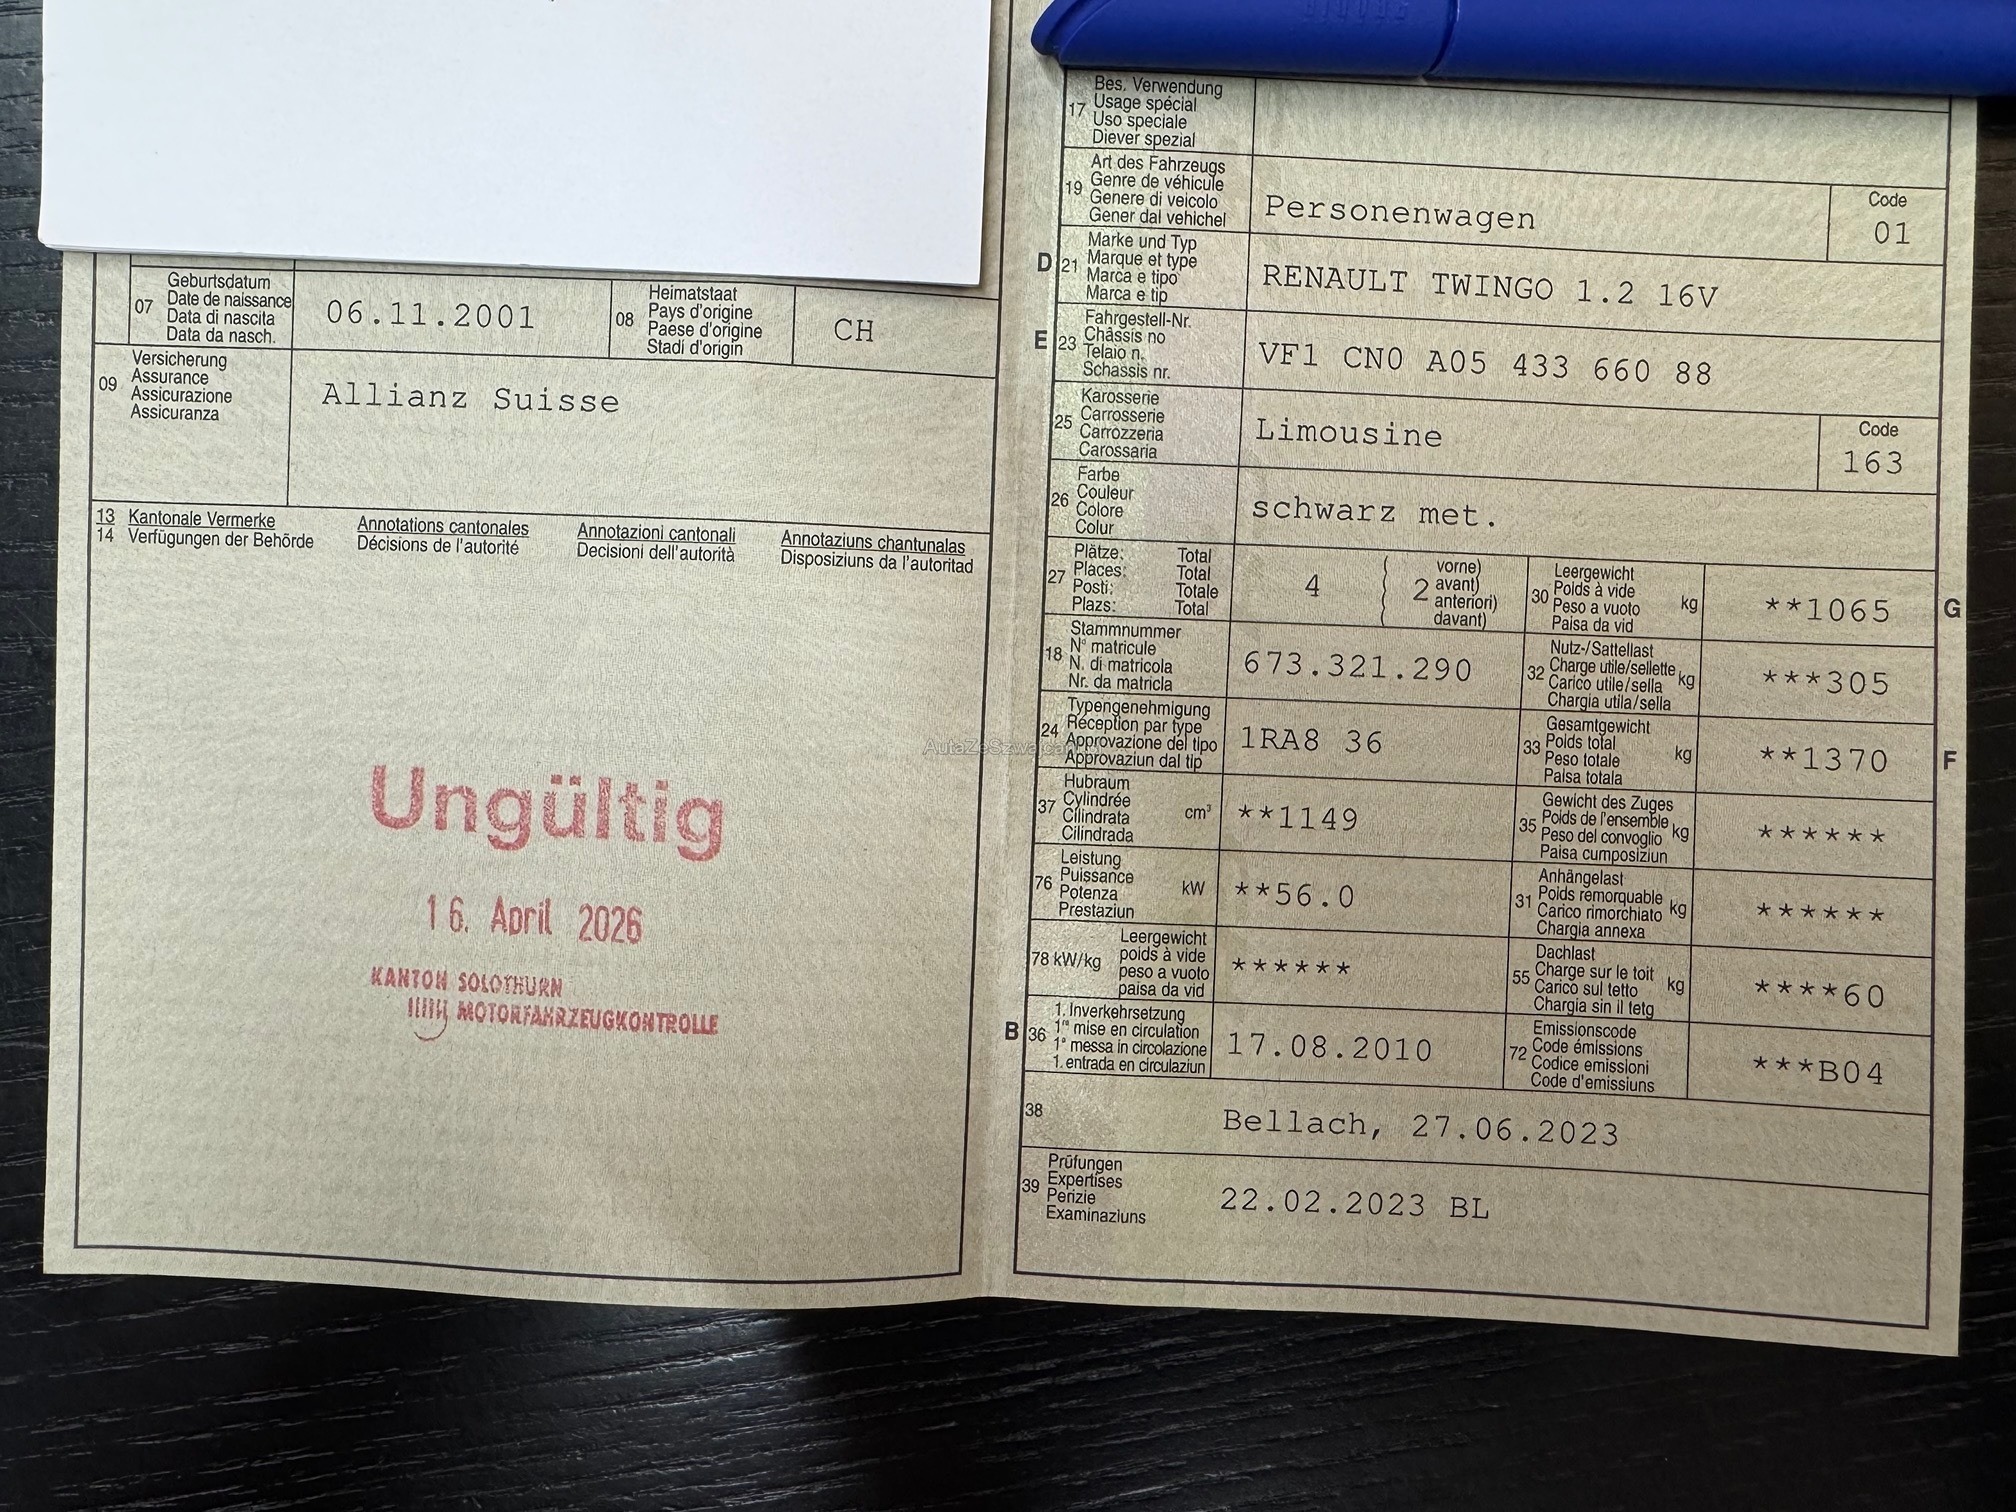 07
Geburtsdatum
Date de naissance
Data di nascita
Data da nasch.
06.11.2001
08
Heimatstaat
Pays d'origine
Paese d'origine
Stadi d'origin
CH
09
Versicherung
Assurance
Assicurazione
Assicuranza
Allianz Suisse
13 Kantonale Vermerke Annotations cantonales Annotazioni cantonali Annotaziuns chantunalas
14 Verfügungen der Behörde Décisions de l'autorité Decisioni dell'autorità Disposiziuns da l'autoritad
Ungültig
16. April 2026
KANTON SOLOTHURN
MOTORFAHRZEUGKONTROLLE
17
Bes. Verwendung
Usage spécial
Uso speciale
Diever spezial
19
Art des Fahrzeugs
Genre de véhicule
Genere di veicolo
Gener dal vehichel
Personenwagen
Code
01
D 21
Marke und Typ
Marque et type
Marca e tipo
Marca e tip
RENAULT TWINGO 1.2 16V
E 23
Fahrgestell-Nr.
Châssis no
Telaio n.
Schassis nr.
VF1 CN0 A05 433 660 88
25
Karosserie
Carrosserie
Carrozzeria
Carossaria
Limousine
Code
163
26
Farbe
Couleur
Colore
Colur
schwarz met.
27
Plätze: Total
Places: Total
Posti: Totale
Plazs: Total
4
2
vorne)
avant)
anteriori)
davant)
30
Leergewicht
Poids à vide
Peso a vuoto
Paisa da vid
kg
**1065
G
18
Stammnummer
N° matricule
N. di matricola
Nr. da matricla
673.321.290
32
Nutz-/Sattellast
Charge utile/sellette
Carico utile/sella
Chargia utila/sella
kg
***305
24
Typengenehmigung
Réception par type
Approvazione del tipo
Approvaziun dal tip
1RA8 36
33
Gesamtgewicht
Poids total
Peso totale
Paisa totala
kg
**1370
F
37
Hubraum
Cylindrée
Cilindrata
Cilindrada
cm³
**1149
35
Gewicht des Zuges
Poids de l'ensemble
Peso del convoglio
Paisa cumposiziun
kg
******
76
Leistung
Puissance
Potenza
Prestaziun
kW
**56.0
31
Anhängelast
Poids remorquable
Carico rimorchiato
Chargia annexa
kg
******
78 kW/kg
Leergewicht
poids à vide
peso a vuoto
paisa da vid
******
55
Dachlast
Charge sur le toit
Carico sul tetto
Chargia sin il tetg
kg
****60
B 36
1. Inverkehrsetzung
1re mise en circulation
1a messa in circolazione
1. entrada en circulaziun
17.08.2010
72
Emissionscode
Code émissions
Codice emissioni
Code d'emissiuns
***B04
38
Bellach, 27.06.2023
39
Prüfungen
Expertises
Perizie
Examinaziuns
22.02.2023 BL